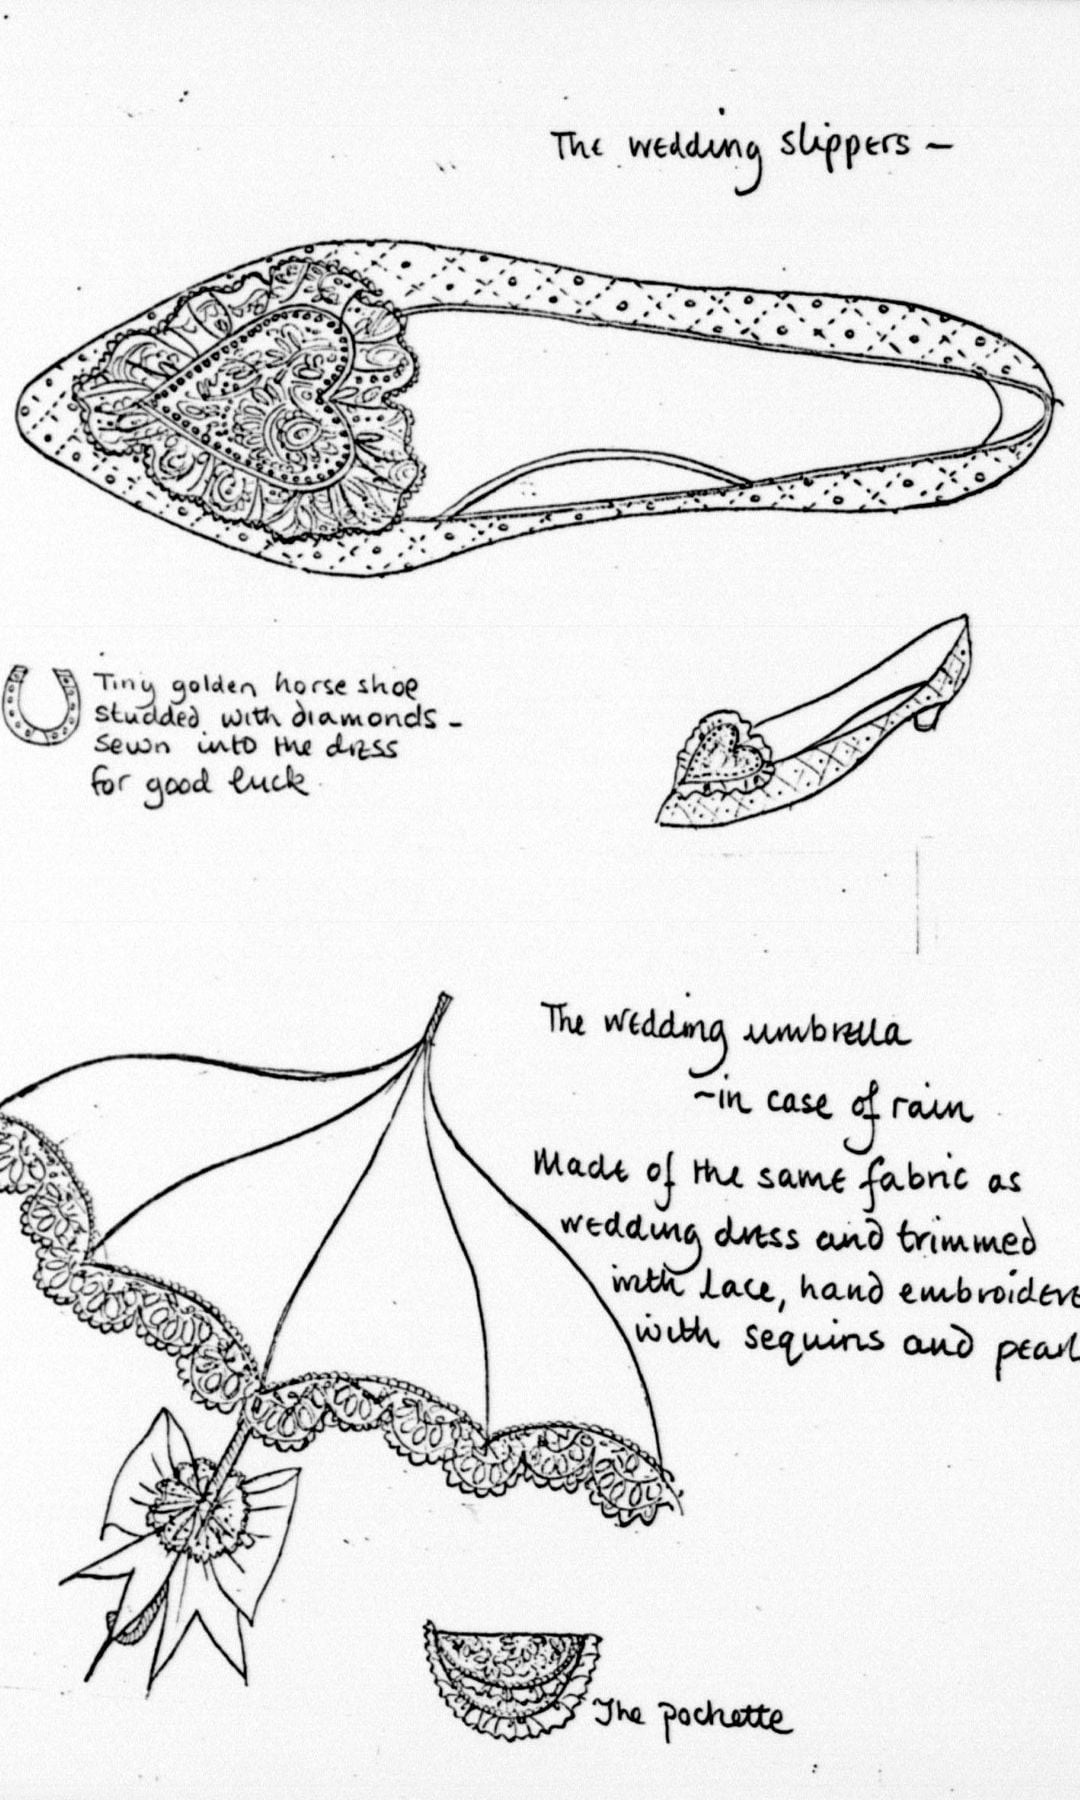 The wedding slippers –
Tiny golden horse shoe
studded with diamonds –
sewn into the dress
for good luck.
The wedding umbrella
–in case of rain
Made of the same fabric as
wedding dress and trimmed
with lace, hand embroidere
with sequins and pearl
The pochette